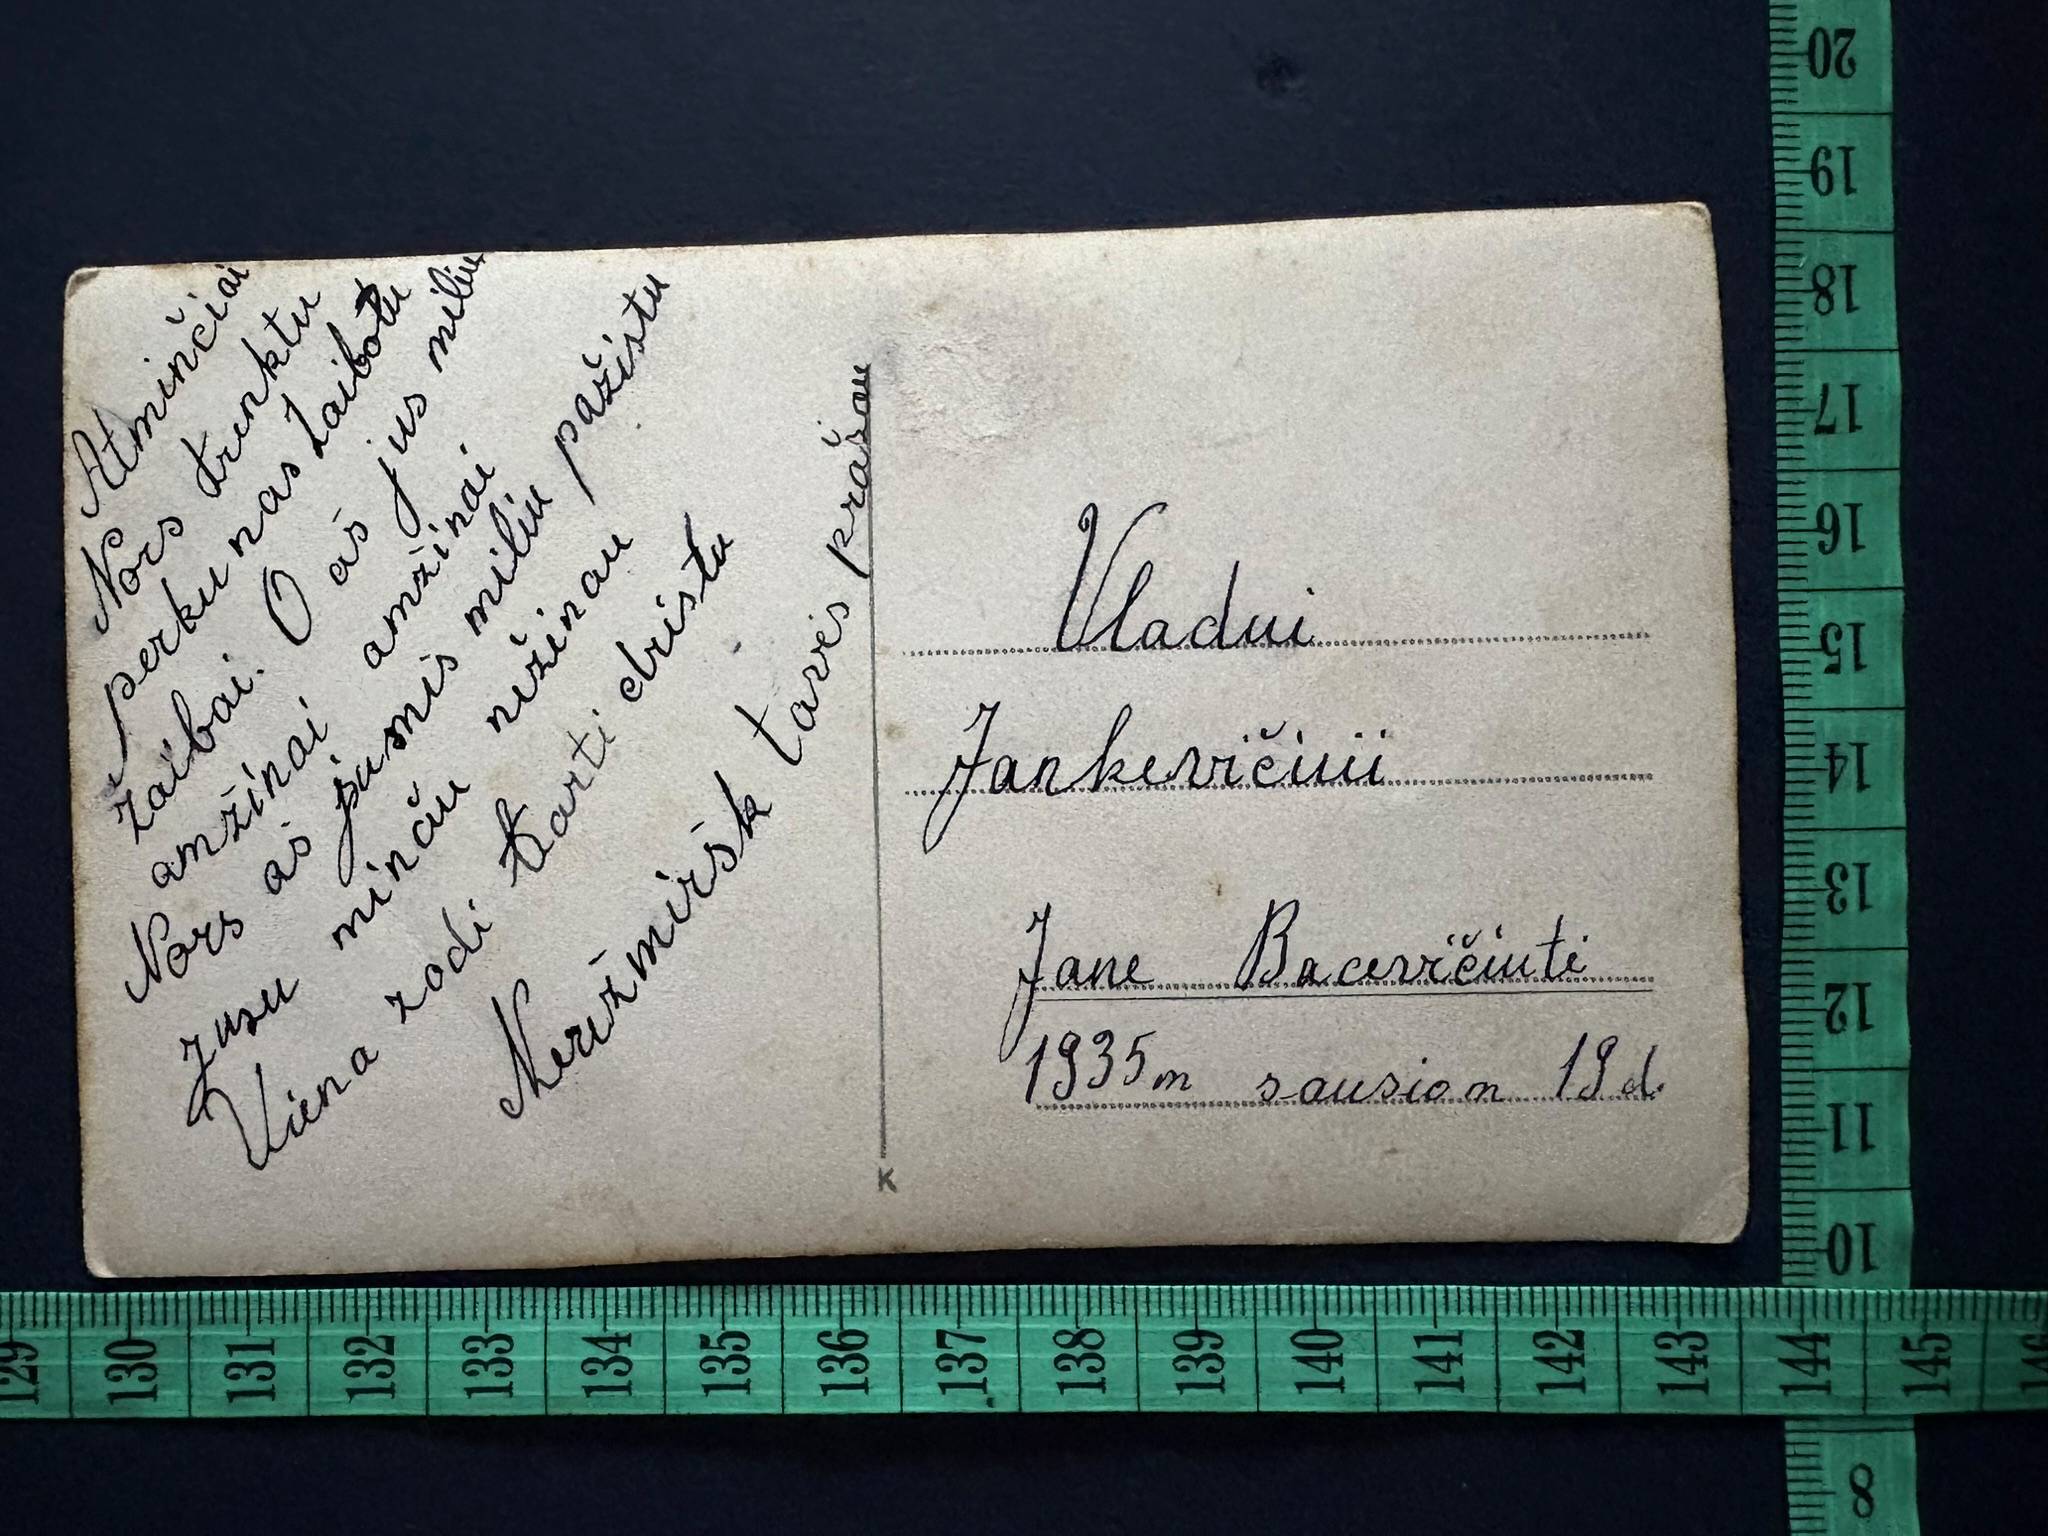 Atminčiai
Nors trenktu
perkunas Laibotu
žaibai. O aš jus miliu
amžinai amžinai
Nors aš jumis miliu pažistu
Jusu minčiu nižinau
Viena zodi tarti dristu
Neružmiršk tavęs prašau
Vladui
Jankevičiuii
Jane Bacevičiuti
1935m sausiom 19d.
K
20
19
18
17
16
15
14
13
12
11
10
8
129 130 131 132 133 134 135 136 137 138 139 140 141 142 143 144 145 146